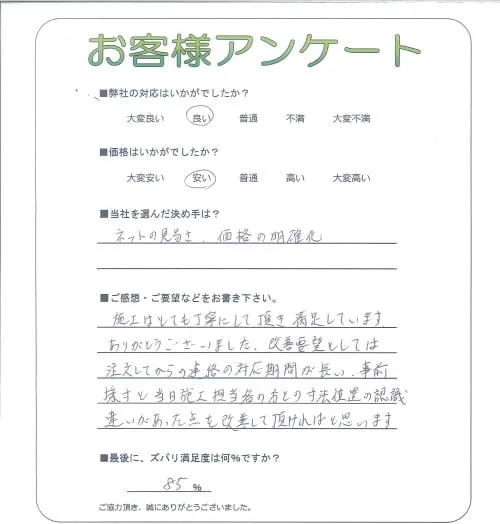 お客様アンケート
■弊社の対応はいかがでしたか？
大変良い 良い 普通 不満 大変不満
■価格はいかがでしたか？
大変安い 安い 普通 高い 大変高い
■当社を選んだ決め手は？
ネットの見易さ、価格の明確化
■ご感想・ご要望などをお書き下さい。
施工はとても丁寧にして頂き満足しています
ありがとうございました、改善要望としては
注文してからの連絡の対応期間が長い、事前
採寸と当日施工担当者の方との寸法位置の認識
違いがあった点も改善して頂ければと思います
■最後に、ズバリ満足度は何%ですか？
85 %
ご協力頂き、誠にありがとうございました。